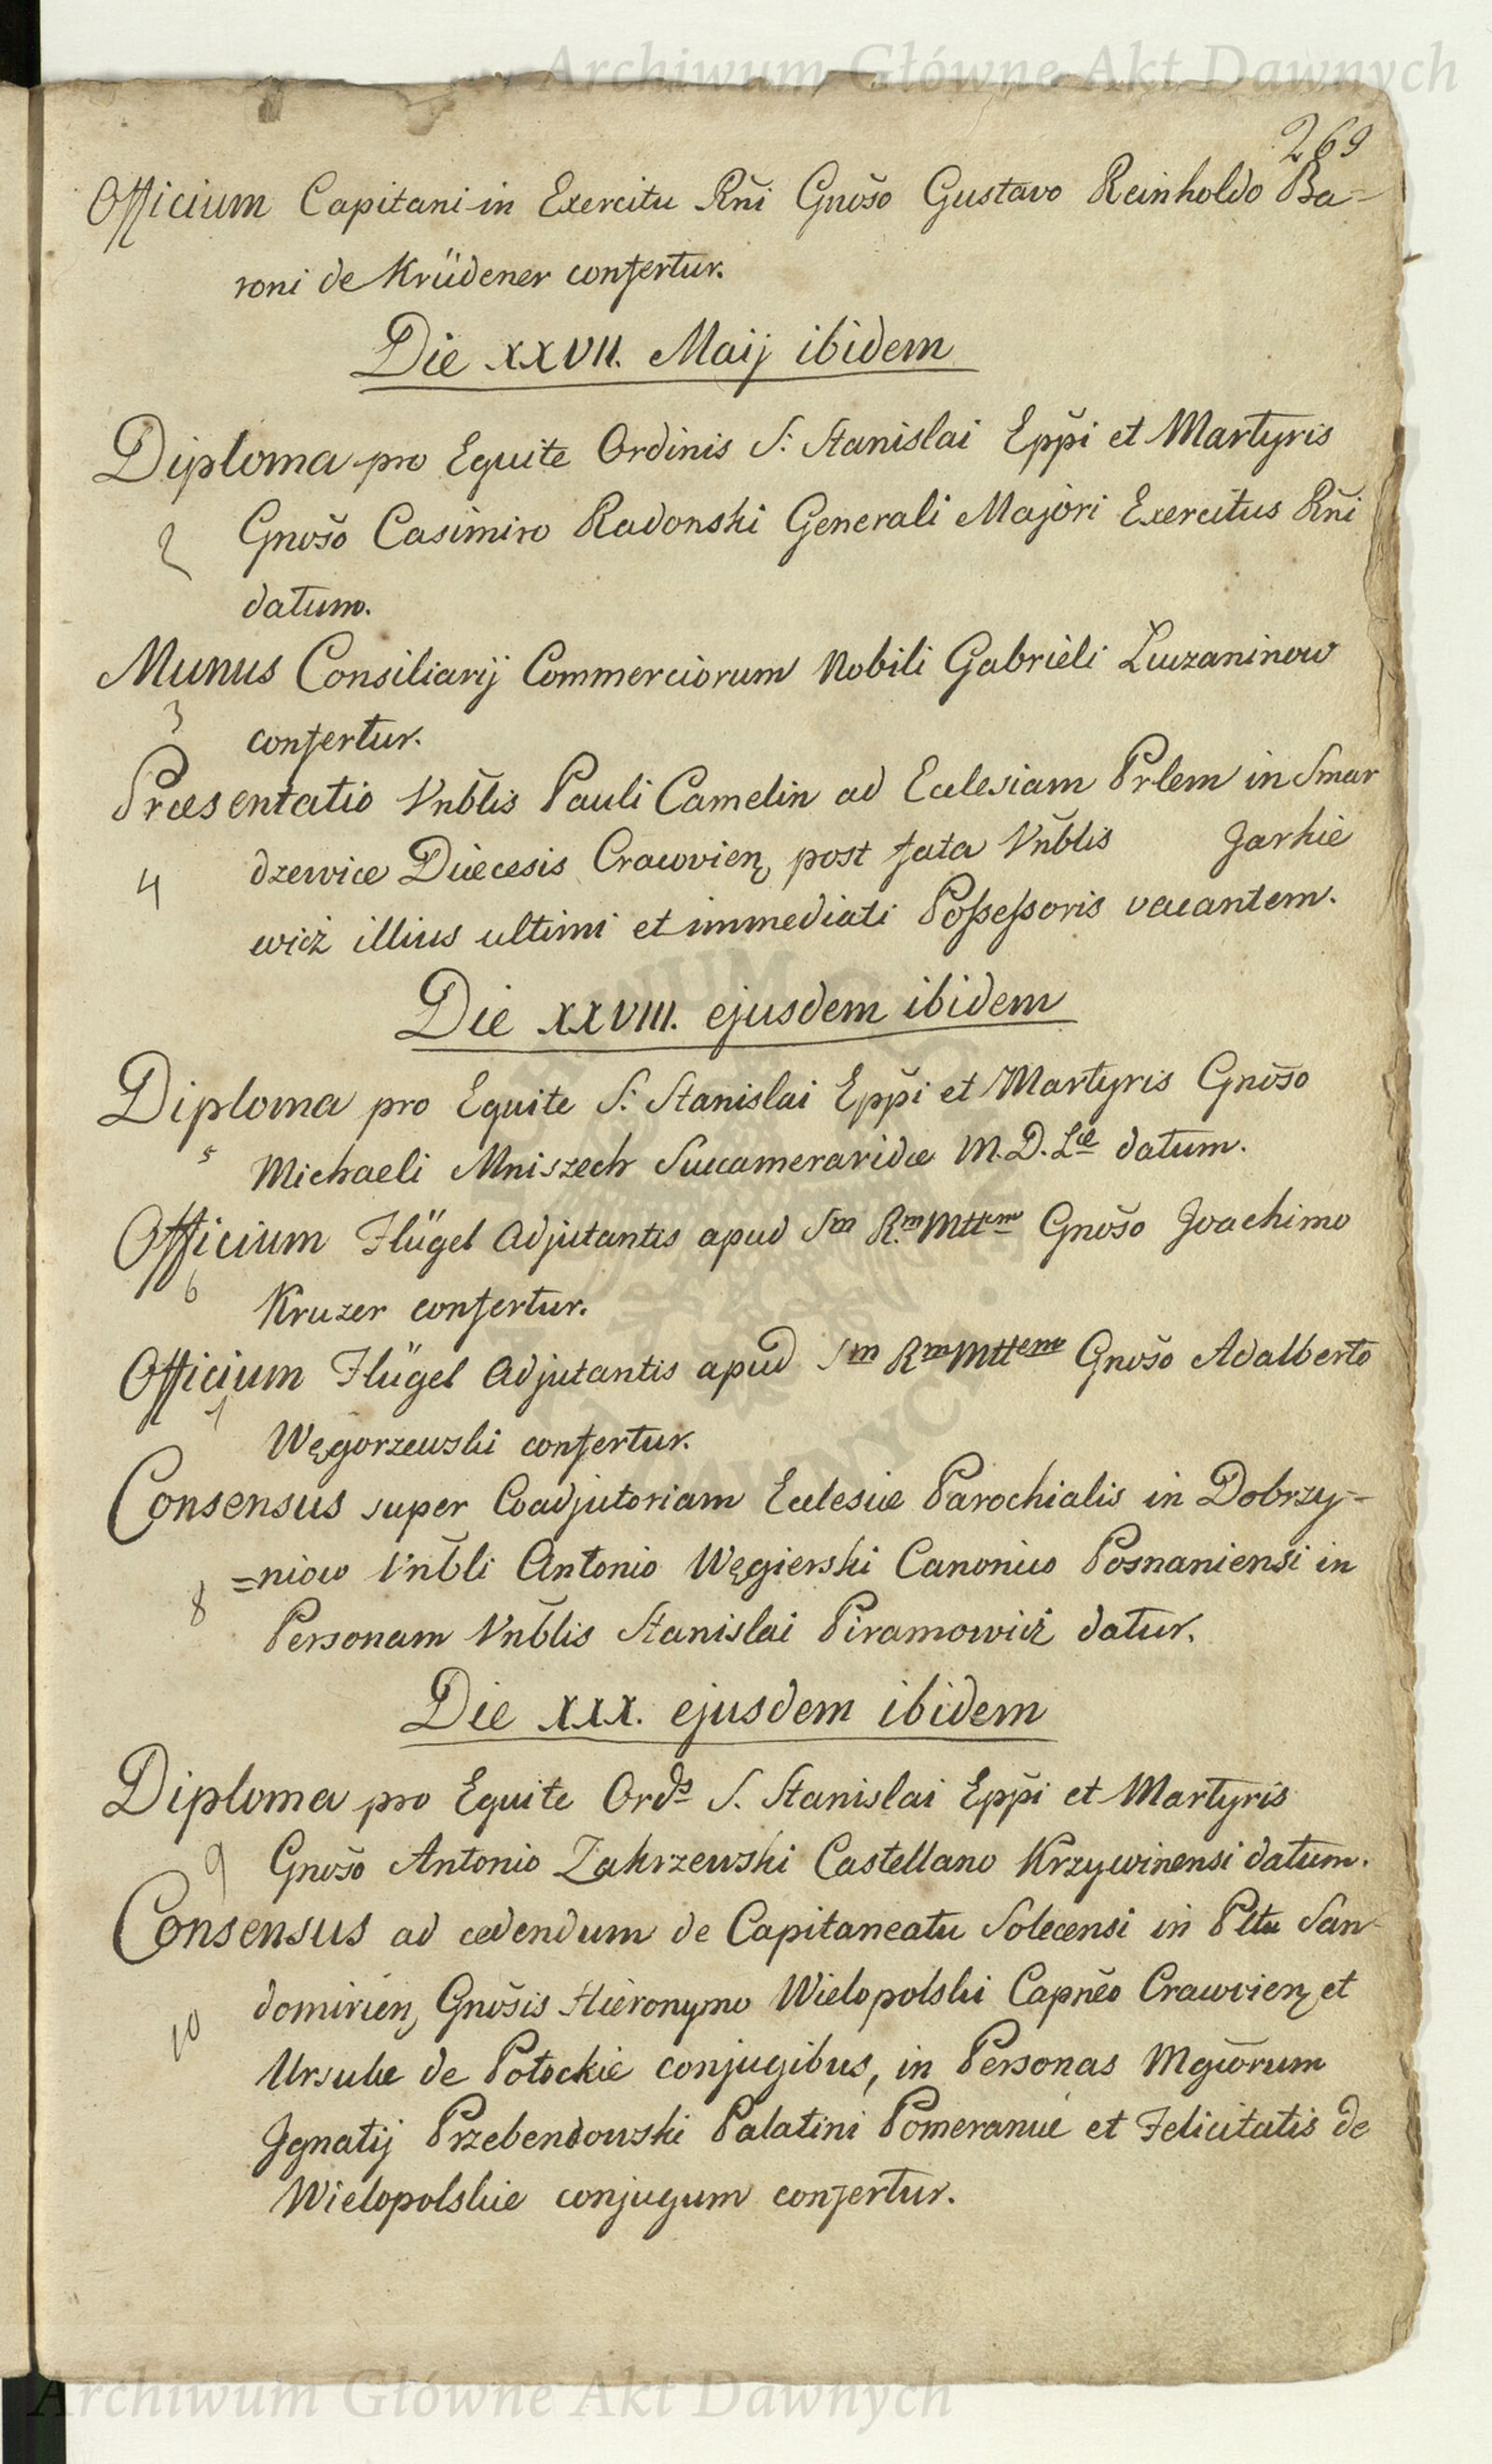 Archiwum Główne Akt Dawnych
269
Officium Capitani in Exercitu Rñi Gnošo Gustavo Reinholdo Ba=
roni de Krüdener confertur.
Die XXVII. Maij ibidem
Diploma pro Equite Ordinis S: Stanislai Eppi et Martyris
2 Gnošo Casimiro Radonski Generali Majori Exercitus Rñi
datum.
Munus Consiliarij Commerciorum Nobili Gabrieli
3 confertur.
Præsentatio Vnblis Pauli Camelin ad Ecclesiam Prlem in Smar
4 dzewice Diæcesis Cracovien, post fata Vnblis Jarkie
wicz illius ultimi et immediati Possessoris vacantem.
Die XXVIII. ejusdem ibidem
Diploma pro Equite S: Stanislai Eppi et Martyris Gnošo
5 Michaeli Mniszech Succameraridæ M.D.Læ datum.
Officium Flügel Adjutantis apud Sm Rm Mttem Gnošo Joachimo
6 Kruzer confertur.
Officium Flügel Adjutantis apud Sm Rm Mttem Gnošo Adalberto
7 Węgorzewski confertur.
Consensus super Coadjutoriam Ecclesiæ Parochialis in Dobrzy=
8 =niow Vnbli Antonio Węgierski Canonico Posnaniensi in
Personam Vnblis Stanislai Piramowicz datur.
Die XXX. ejusdem ibidem
Diploma pro Equite Ords S. Stanislai Eppi et Martyris
9 Gnošo Antonio Zakrzewski Castellano Krzywinensi datum.
Consensus ad cedendum de Capitaneatu Solecensi in Pltu San
10 domirien, Gnošis Hieronymo Wielopolski Capneo Cracovien, et
Ursulæ de Potockie conjugibus, in Personas Mgcorum
Jgnatij Przebendowski Palatini Pomeraniæ et Felicitatis de
Wielopolskie conjugum confertur.
Archiwum Główne Akt Dawnych